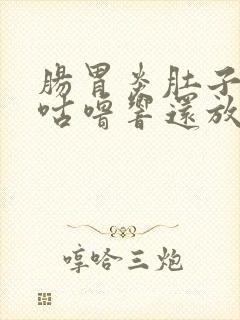 腸胃炎肚子
咕嚕響還放
哼哈三炮